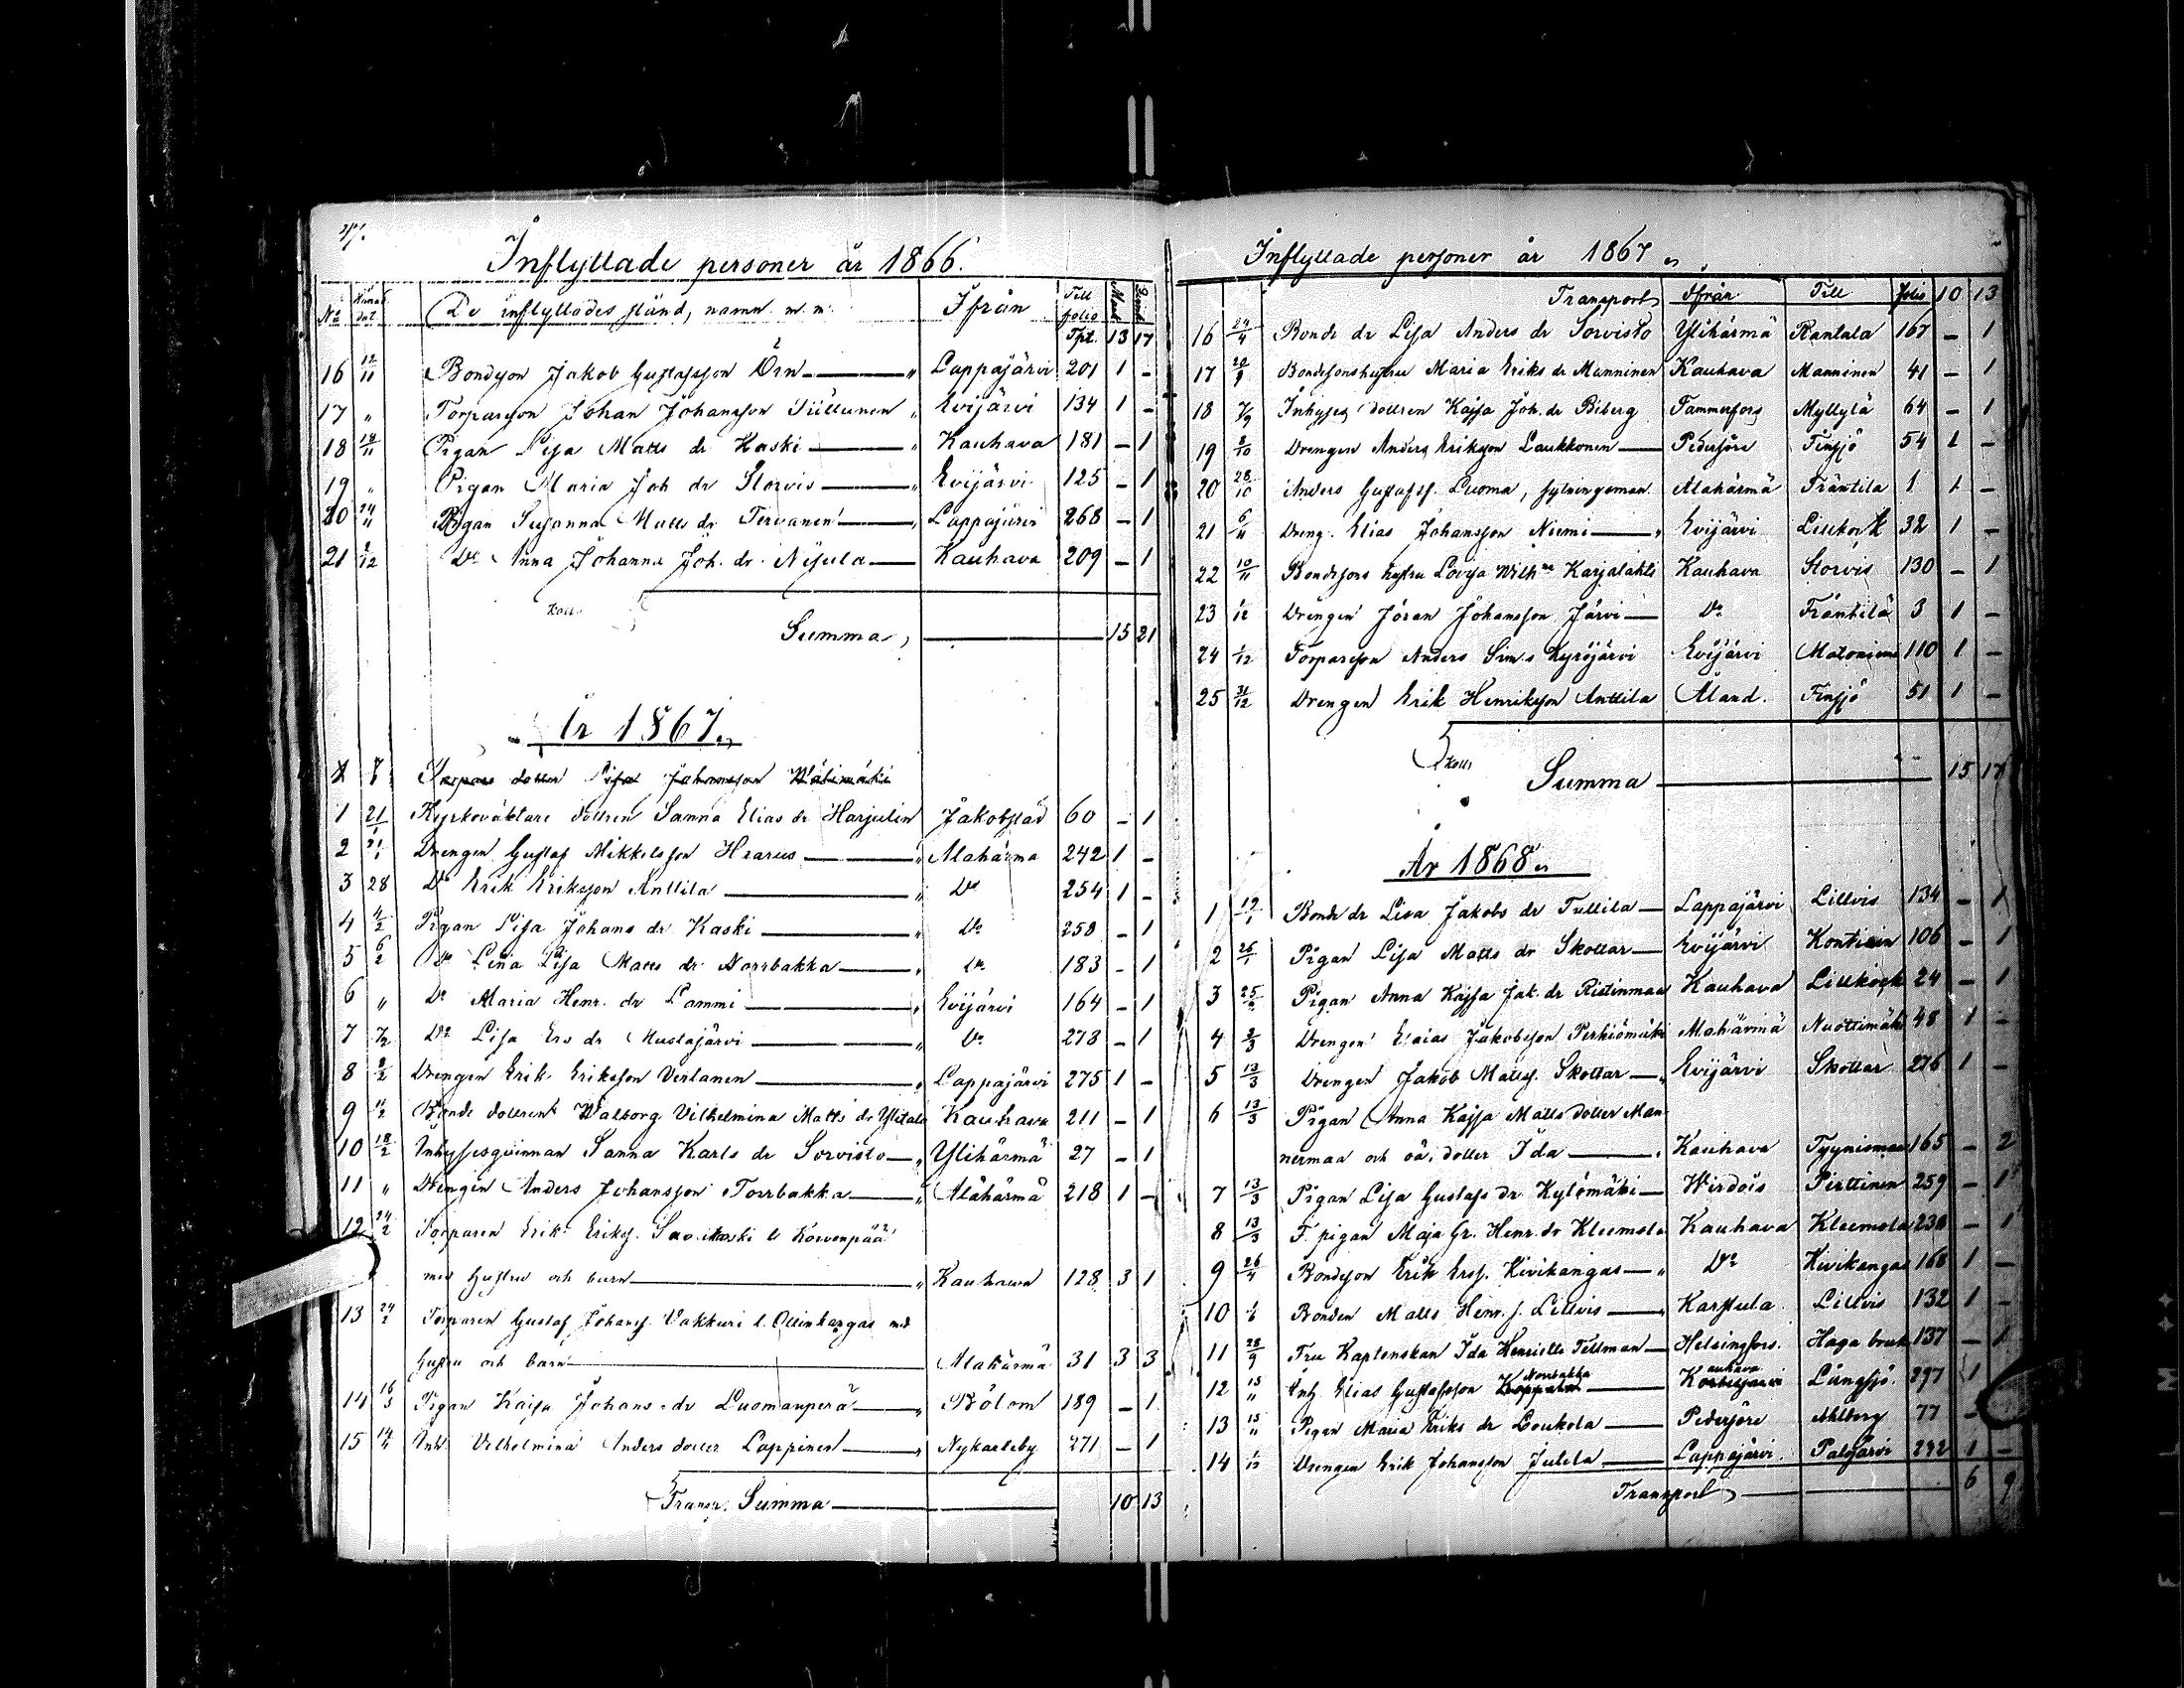 Inflyttade personer år 1866.
No De inflyttades stånd, namn m. m. Ifrån Till folio
Tpt. 13 17
16 12/11 Bondson Jakob Gustafsson Örn — " Lappajärvi 201 1 -
17 " Torparson Johan Johansson " Evijärvi 134 1 -
18 /11 Pigan Lisa Matts dr Kaski — " Kauhava 181 - 1
19 " Pigan Maria Joh dr Storvis — " Evijärvi 125 - 1
20 24/11 Pigan Susanna Matts dr Tervanen — " Lappajärvi 268 - 1
21 /12 Do Anna Johanna Joh. dr. Nisula — Kauhava 209 - 1
Summa, — 15 21
År 1867.
dotter Lisa Johansson Wälimäki
1 21/1 Kyrkoväktare dottren Sanna Elias dr Harjulin Jakobstad 60 - 1
2 21/1 Drengen Gustaf Mikkelsson — " Alahärmä 242 1 -
3 28 Do Erik Eriksson Anttila — " Do 254 1 -
4 4/2 Pigan Lisa Johans dr Kaski — " Do 258 - 1
5 6/2 Do Lena Lisa Matts dr Norrbakka — " Do 183 - 1
6 " Do Maria Henr. dr Lammi — " Evijärvi 164 - 1
7 7/2 Do Lisa Ers dr Mustajärvi — " Do 278 - 1
8 8/2 Drengen Erik Eriksson — " Lappajärvi 275 1 -
9 11/2 Bonde dottren Walborg Vilhelmina Matts dr Ylitalo Kauhava 211 - 1
10 18/2 Inhysesqvinnan Sanna Karls dr Sorvisto — " Ylihärmä 27 - 1
11 " Drengen Anders Johansson Torrbakka — " Alahärmä 218 1 -
12 24/2 Torparen Erik Eriks. Savikoski l. Korvenpää
med hustru och barn — " Kauhava 128 3 1
13 24/2 Torparen Gustaf Johans. Vakkuri l. Ollinkangas med
hustru och barn — Alahärmä 31 3 3
14 16/3 Pigan Kaisa Johans dr Luomanperä — " 189 - 1
15 Inh. Vilhelmina Anders dotter Lappinen — " Nykarleby 271 - 1
Transp. Summa — 10 13
Inflyttade personer år 1867
Transport Ifrån Till folio 10 13
16 24/4 Bonde dr Lisa Anders dr Sorvisto Ylihärmä Rantala 167 - 1
17 Bondesonshustru Maria Eriks dr Manninen Kauhava Manninen 41 - 1
18 7/9 Inhyses dottren Kajsa Joh. dr Biberg Tammerfors Myllylä 64 - 1
19 8/10 Drengen Anders Eriksson Laukkonen — Pedersöre Finsjö 54 1 -
20 28/10 Anders Gustafss. Luoma, Alahärmä Fräntilä 1 1 -
21 6/11 Dreng. Elias Johansson Niemi — " Evijärvi 32 1 -
22 10/11 Bondesons hustru Lovisa Wilh. Karjalahti Kauhava Storvis 130 - 1
23 1/12 Drengen Jöran Johansson Järvi — Do Fräntilä 3 1 -
24 1/12 Torparson Anders Sim.s Kyröjärvi Evijärvi 110 1 -
25 31/12 Drengen Erik Henriksson Anttila Åland. Finsjö 51 1 -
Summa — 15 17
År 1868
1 19/1 Bonde dr Lisa Jakobs dr Tullila — Lappajärvi Lillvis 134 - 1
2 26/1 Pigan Lisa Matts dr Skottar — Evijärvi 106 - 1
3 Pigan Anna Kajsa Jak. dr Ristinmaa Kauhava 24 - 1
4 Drengen Esaias Jakobsson Perkiömäki Alahärmä Nuottimäki 48 1 -
5 13/3 Drengen Jakob Mattss. Skottar — " Evijärvi Skottar 276 1 -
6 13/3 Pigan Anna Kajsa Matts dotter Man-
nermaa och oä. dotter Ida — Kauhava Tyynismaa 165 - 2
7 13/3 Pigan Lisa Gustafs dr Kylömäki — Wirdois Pirttinen 259 - 1
8 13/3 F. pigan Maja Gr. Henr. dr Kleemola Kauhava Kleemola 236 - 1
9 26/4 Bondeson Erik Erss. Kivikangas — " Do Kivikangas 168 1 -
10 Bonden Matts Henr. s. Lillvis — Karstula Lillvis 132 1 -
11 28/9 Fru Kaptenskan Ida Henriette Tellman — Helsingfors. Haga bruk 137 - 1
12 15/11 Inh. Elias Gustafsson Norrbakka — Kauhava Långsjö 297 1
13 15/11 Pigan Maria Eriks dr Loukola — Pedersöre Ahlberg 77 -
14 1/12 Drengen Erik Johansson Julula — Lappajärvi. Palojärvi 292 1 -
Transport — 6 9